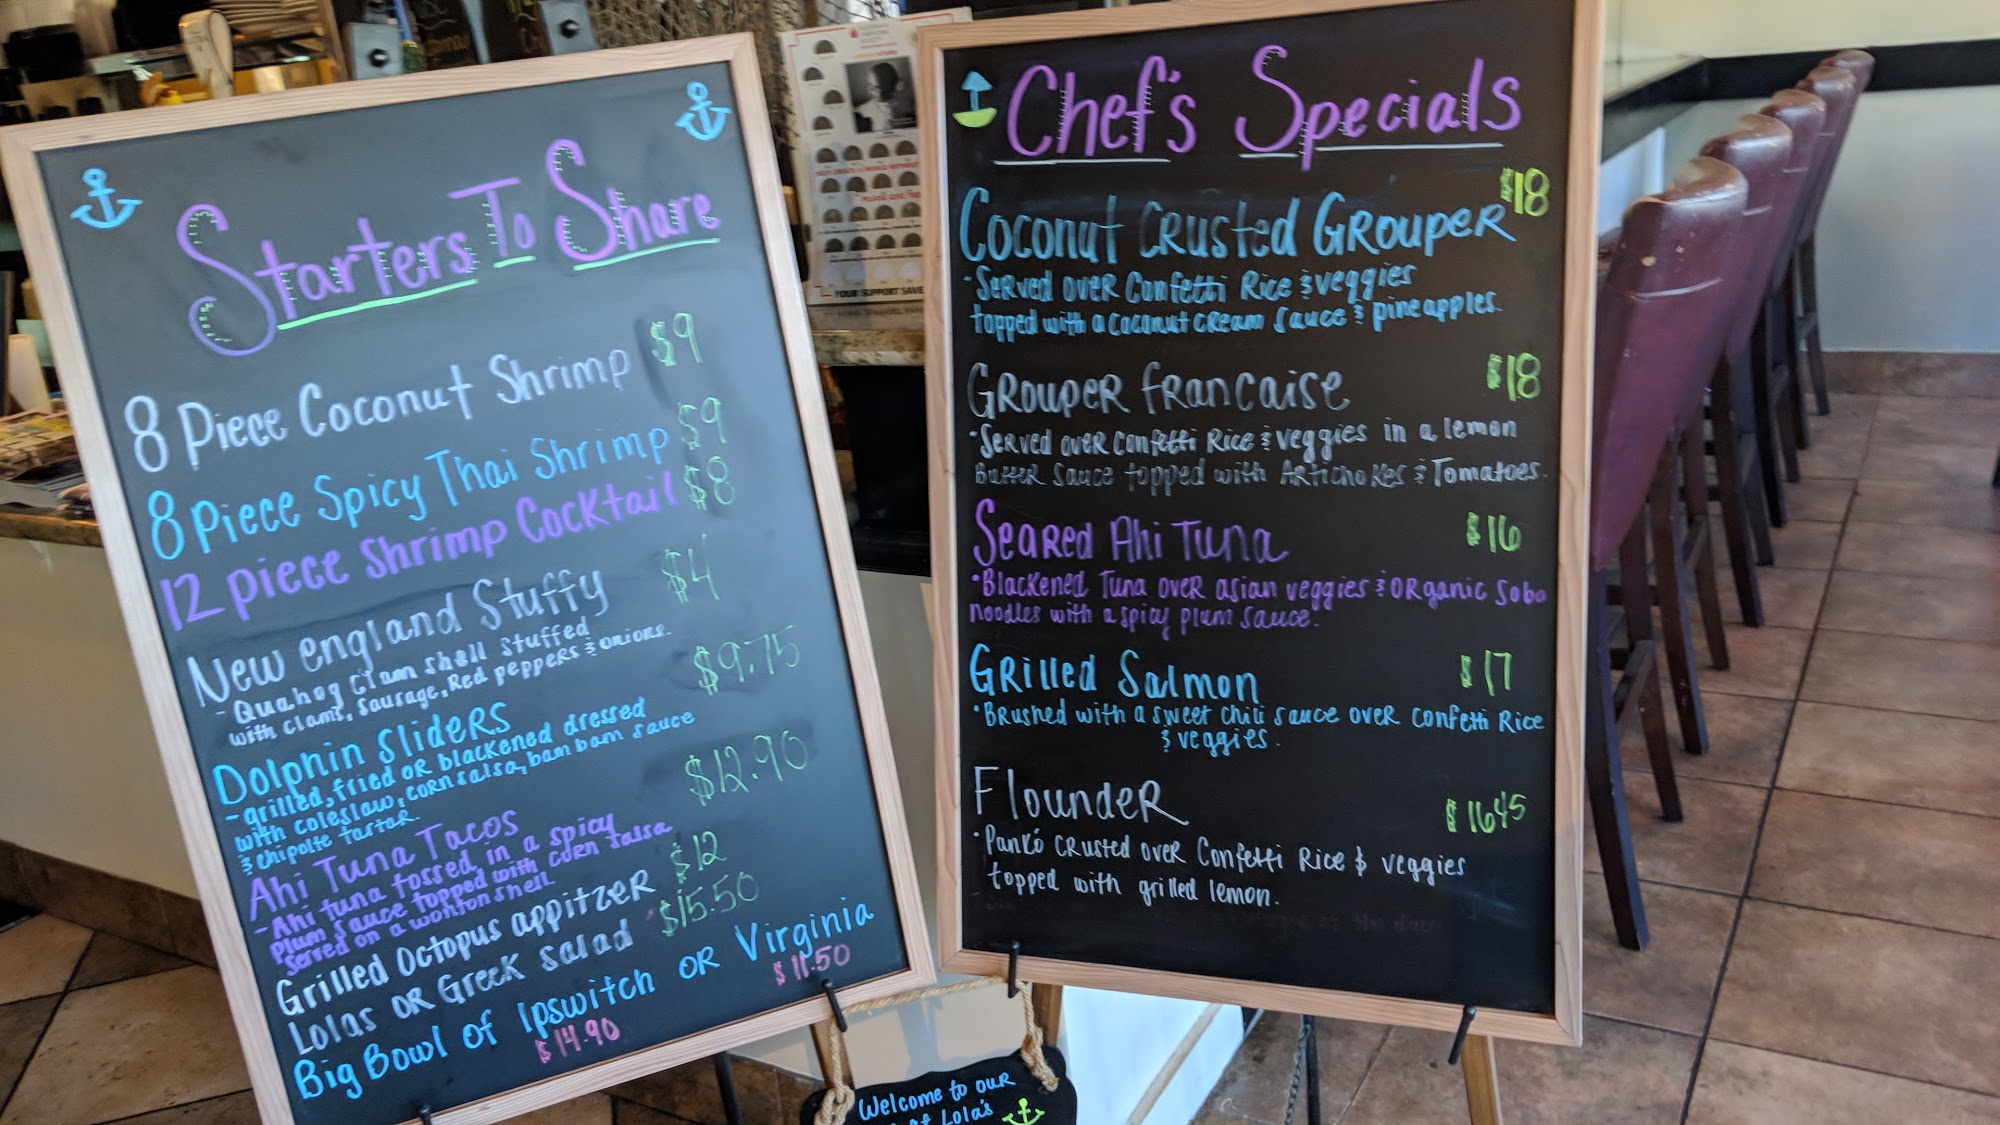 Starters To Share
8 Piece Coconut Shrimp $9
8 Piece Spicy Thai Shrimp $9
12 piece Shrimp Cocktail $8
New england Stuffy $4
- Quahog clam shell stuffed
with clams, sausage, Red peppers & onions.
Dolphin Sliders $9.75
- grilled, fried or blackened dressed
with coleslaw, corn salsa, bam bam sauce
& chipolte tartar.
Ahi Tuna Tacos $12.90
- Ahi tuna tossed in a spicy
Plum sauce topped with corn salsa
served on a wonton shell
Grilled Octopus appitzer $12
Lolas or Greek salad $15.50
Big Bowl of Ipswitch or Virginia
$14.90 $11.50
YOUR SUPPORT SAVE
Chef's Specials
Coconut Crusted Grouper $18
• Served over Confetti Rice & veggies
topped with a coconut cream sauce & pineapples.
Grouper Francaise $18
• Served over Confetti Rice & veggies in a lemon
Butter sauce topped with Artichokes & Tomatoes.
Seared Ahi Tuna $16
• Blackened Tuna over asian veggies & organic soba
noodles with a spicy plum sauce.
Grilled Salmon $17
• Brushed with a sweet chili sauce over confetti Rice
& veggies.
Flounder $16.45
• Panko crusted over Confetti Rice & veggies
topped with grilled lemon.
Welcome to our
at Lola's